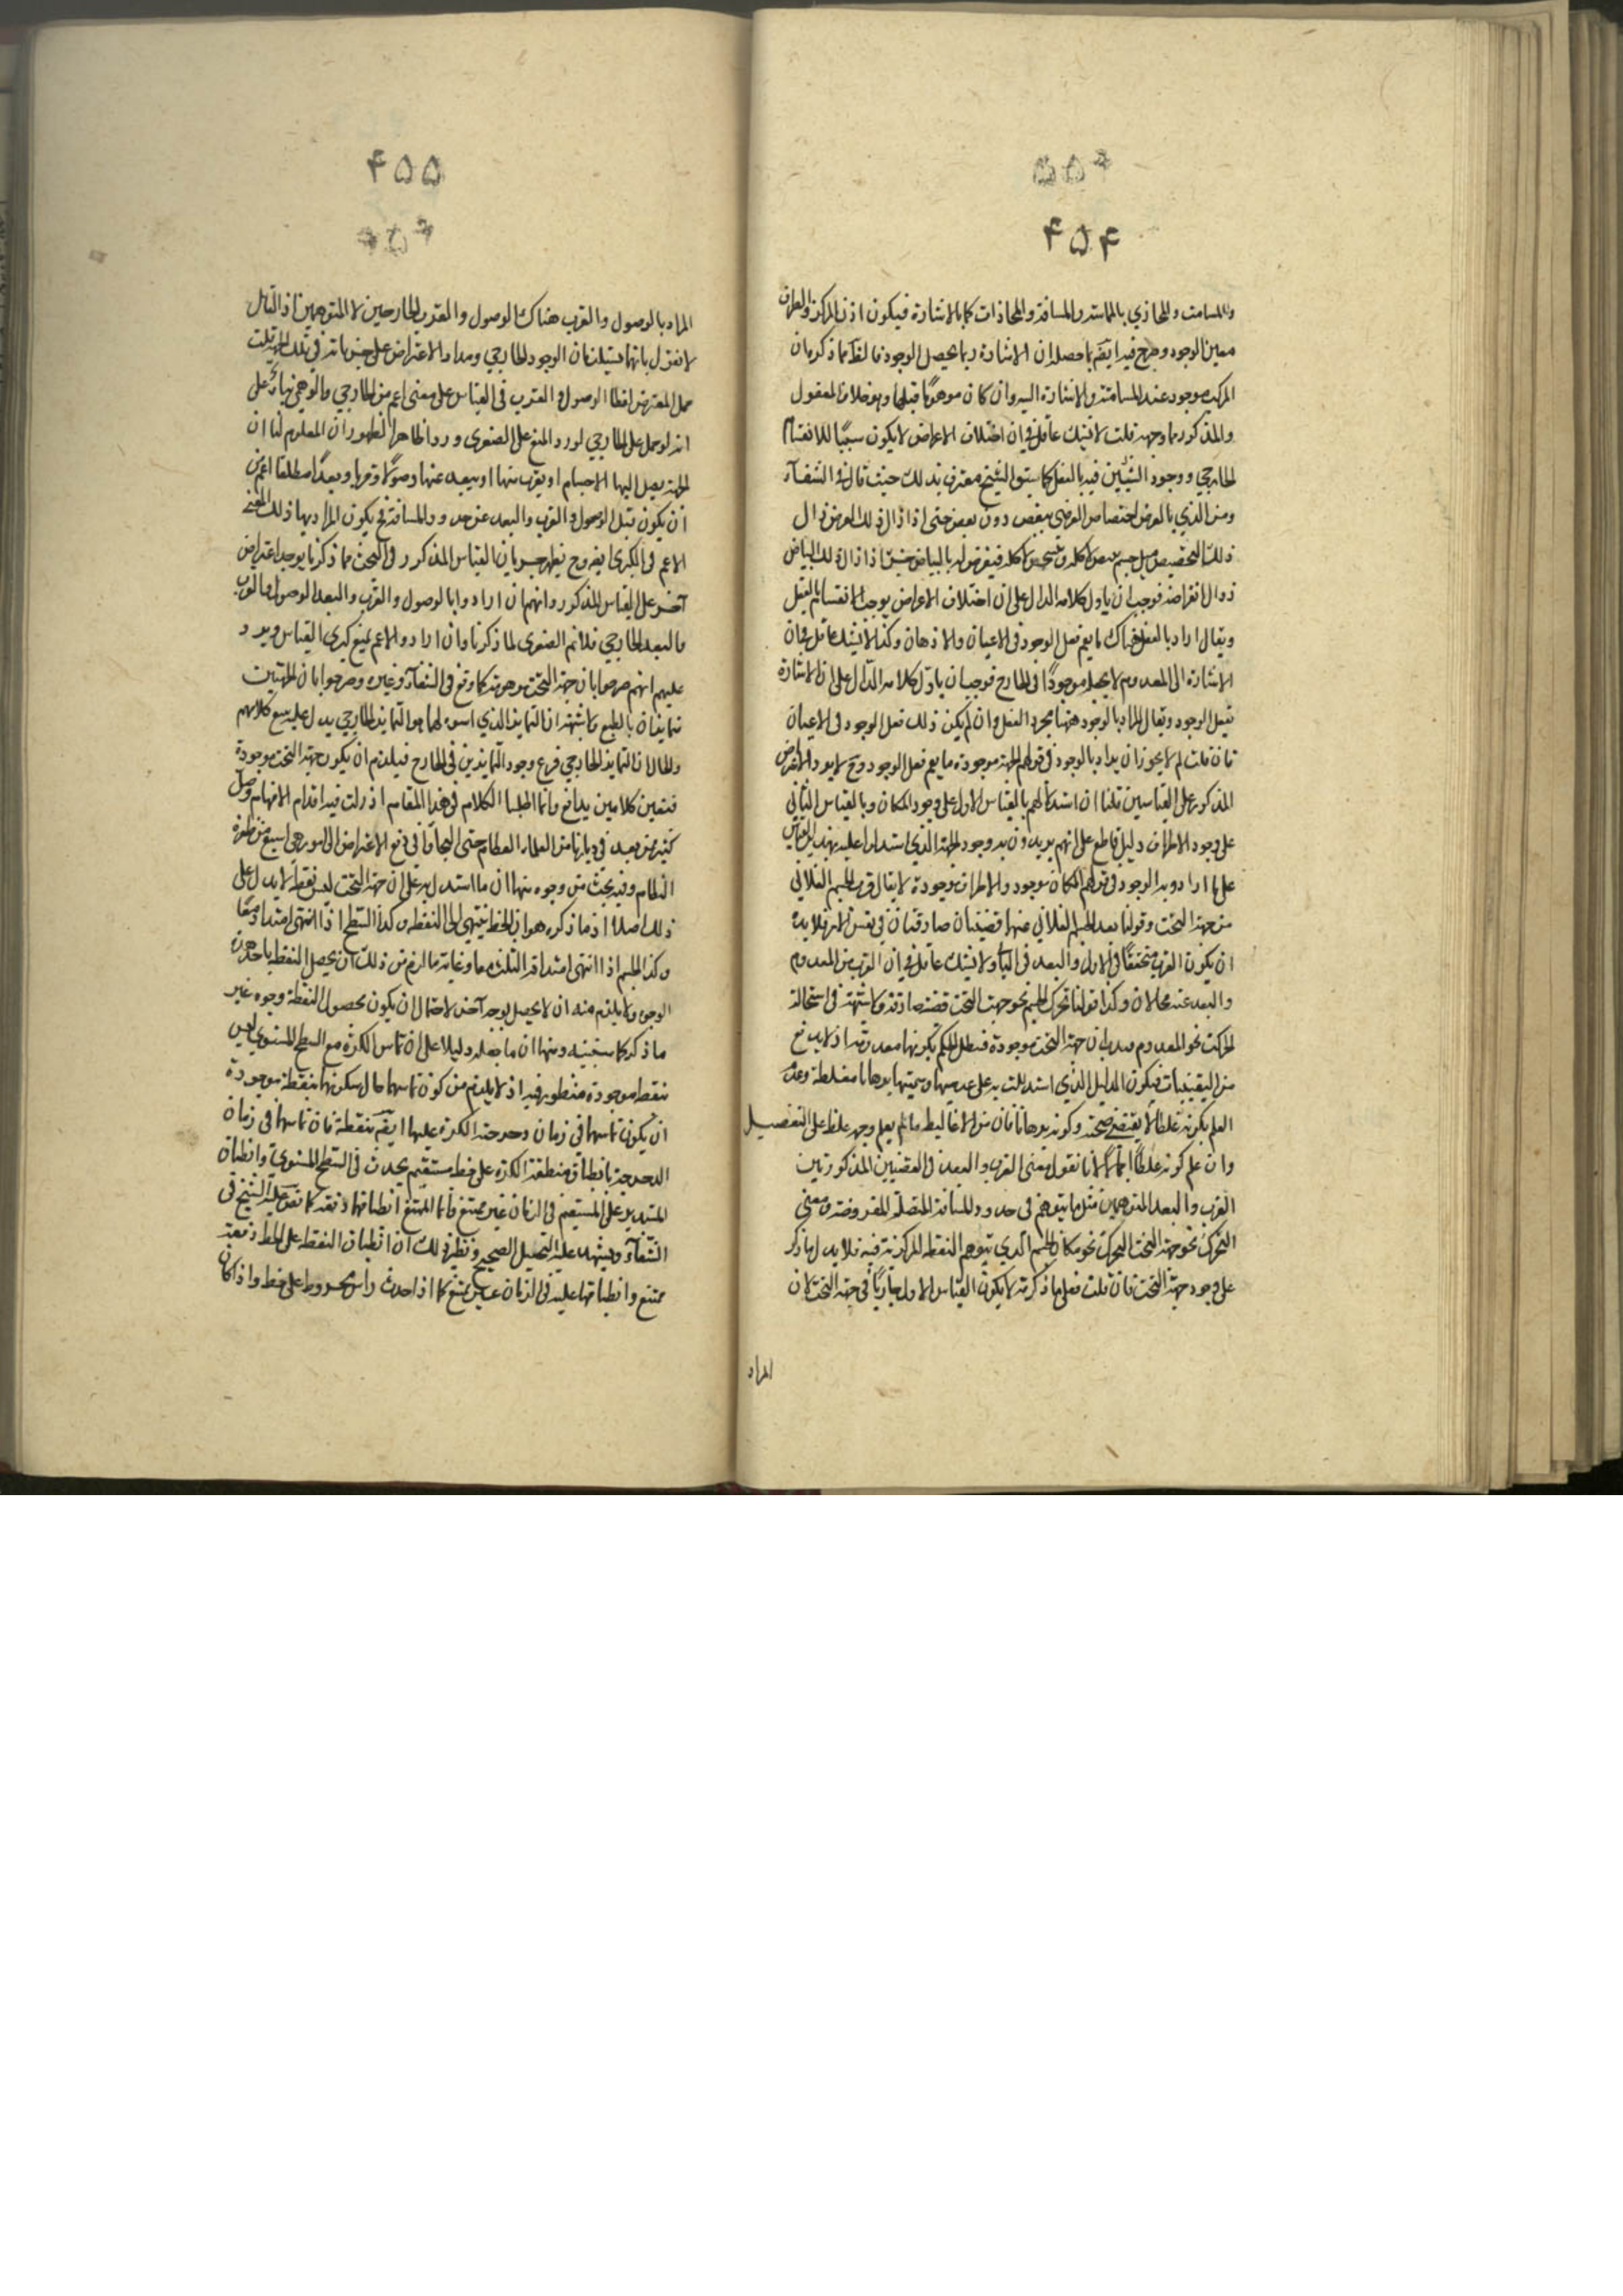 ۴۵۴
والمسامت والمحاذي بالمماسة والمسافة والمحاذات كما بالاشارة فيكون اذن المركز والطرف
معين الوجود وصرح فيه ايضًا بما حصله ان الاشارة ربما يحصل الوجود فالظ مما ذكره ان
المركز موجود عند المسامتة والاشارة اليه وان كان موهومًا قبلها وهو خلاف المعقول
والمذكور فما وجهه قلت لا يشك عاقل في ان اختلاف الاعراض لا يكون سببًا للانقسام
الخارجي ووجود الشيئين فيه بالفعل كما سبق الشيخ معترف بذلك حيث قال في الشفآء
ومن الذي بالعرض اختصاص العرض ببعض دون بعض حتى اذا زال ذلك العرض زال
ذلك التخصيص مثل جسم يبيض لا كله فيفرض له بالبياض جزء اذا زال ذلك البياض
زوال افتراضه فوجب ان ياول كلامه الدال على ان اختلاف الاعراض يوجب الانقسام بالفعل
ويقال اراد بالفعل هناك ما يعم فعل الوجود في الاعيان والاذهان وكذا لا يشك عاقل في ان
الاشارة الى المعدوم لا يجعله موجودًا في الخارج فوجب ان ياول كلامه الدّال على ان الاشارة
تفعل الوجود ويقال المراد بالوجود ههنا مجرد الفعل وان لم يكن ذلك فعل الوجود في الاعيان
فان قلت لم لا يجوز ان يراد بالوجود في قولهم الجهة موجودة ما يعم فعل الوجود وح لا يرد الاعتراض
المذكور على القياسين قلنا ان استدلالهم بالقياس الاول على وجود المكان وبالقياس الثاني
على وجود الاطراف دليل قاطع على انهم يريدون به وجود الجهة الذي استدلوا عليه بهذين القياسين
على ما ارادوا به الوجود في قولهم المكان موجود والاطراف موجودة لا يقال قرب الجسم الفلاني
من جهة التحت وقولنا بعد الجسم الفلاني عنها قضيتان صادقتان في نفس الامر فلا بد
ان يكون القرب متحققًا في الاول والبعد في الثاني ولا يشك عاقل في ان القرب من المعدوم
والبعد عنه محالان وكذا قولنا تحرك الجسم نحو جهة التحت قضية صادقة ولا شبهة في استحالة
الحركة نحو المعدوم فبان جهة التحت موجودة فبطل الحكم بكونها معدومة اذ لا يدفع
من اليقينيات فيكون الدليل الذي استدللت به على عدميتها وسميتها برهانا مغلطة وعدم
العلم بكونه غلطًا لا يقتضي صحته وكونه برهانا فان من الاغاليط ما لم يعلم وجه غلط على التفصيل
وان علم كونه غلطًا اجمالًا لانا نقول معنى القرب والبعد في القضيتين المذكورتين
القرب والبعد المتوهمين مثل ما يتوهم في حدود المسافة المتصلة المفروضة ومعنى
التحرك نحو جهة التحت التحرك نحو مكان الجسم الذي يتوهم النقطة المركزية فيه فلا يدل ما ذكر
على وجود جهة التحت فان قلت فعلى ما ذكرته لا يكون القياس الاول جاريًا في جهة التحت لان
المراد
۴۵۵
المراد بالوصول والقرب هناك الوصول والقرب الخارجين لا المتوهمين اذ القائل
لا نقول بانهما يستلزمان الوجود الخارجي ومدار الاعتراض على جريانه في تلك الجهة قلت
حمل المعترض لفظ الوصول والقرب في القياس على معنى اعم من الخارجي والوهمي بناءً على
انه لو حمل على الخارجي لورد المنع على الصغرى ورودا ظاهرا لظهور ان المعلوم لنا ان
الجهة يصل اليها الاجسام او يقرب منها او يبعد عنها وصولًا وقربا وبعدًا مطلقا اعم من
ان يكون قبل الوصول والقرب والبعد عن حدود المسافة فيكون المراد بها ذلك المعنى
الاعم في الكبرى ايضا وح يظهر جريان القياس المذكور في التحت مما ذكرنا يوجد اعتراض
آخر على القياس المذكور وانهم ان ارادوا بالوصول والقرب والبعد الوصول والقرب
والبعد الخارجي فلا نم الصغرى لما ذكرنا وان ارادوا الاعم يمنع كبرى القياس ويرد
عليهم انهم صرحوا بان جهة التحت موهومة كما وقع في الشفآء وغيره وصرحوا بان الجهتين
تمايزان بالطبع ولا شبهة ان التمايز الذي اسوه لهما هو التمايز الخارجي يدل عليه تتبع كلامهم
والحال ان التمايز الخارجي فرع وجود المتمايزين في الخارج فيلزم ان يكون جهة التحت موجودة
فبين كلامين تدافع وانما اطلنا الكلام في هذا المقام اذ زلت فيه اقدام الافهام وضل
كثير ممن يعد في ديارنا من العلماء العظام حتى التجاوا في دفع الاعتراض الى امور هي اسبع من طفرة
النظام وفيه بحث من وجوه منها ان ما استدل به على ان جهة التحت ليس نقطة لا يدل على
ذلك اصلا اذ ما ذكره هو ان الخط ينتهي الى النقطة وكذا السطح اذا انتهى امتداده معًا
وكذا الجسم اذا انتهى امتداداته الثلثة معا وغاية ما لزم من ذلك ان يحصل النقطة باحد هذه
الوجوه ولا يلزم منه ان لا يحصل بوجه آخر لاحتمال ان يكون لحصول النقطة وجوه غير
ما ذكر كما ستبينه ومنها ان ما جعله دليلا على ان تماس الكرة مع السطح المستوي ليس
بنقطة موجودة منظور فيه اذ لا يلزم من كون تماسهما حال سكونها بنقطة موجودة
ان يكون تماسهما في زمان دحرجة الكرة عليها ايضًا بنقطة فان تماسهما في زمان
الدحرجة بانطباق منطقة الكرة على خط مستقيم يحدث في السطح المستوي وانطباق
المستدير على المستقيم في الزمان غير ممتنع وانما الممتنع انطباقهما دفعة كما نص عليه الشيخ في
الشفآء ويشهد عليه التخيل الصحيح ونظير ذلك ان انطباق النقطة على الخط دفعة
ممتنع وانطباقها عليه في الزمان غير ممتنع كما اذا حدث راس مخروط على خط واذا كان